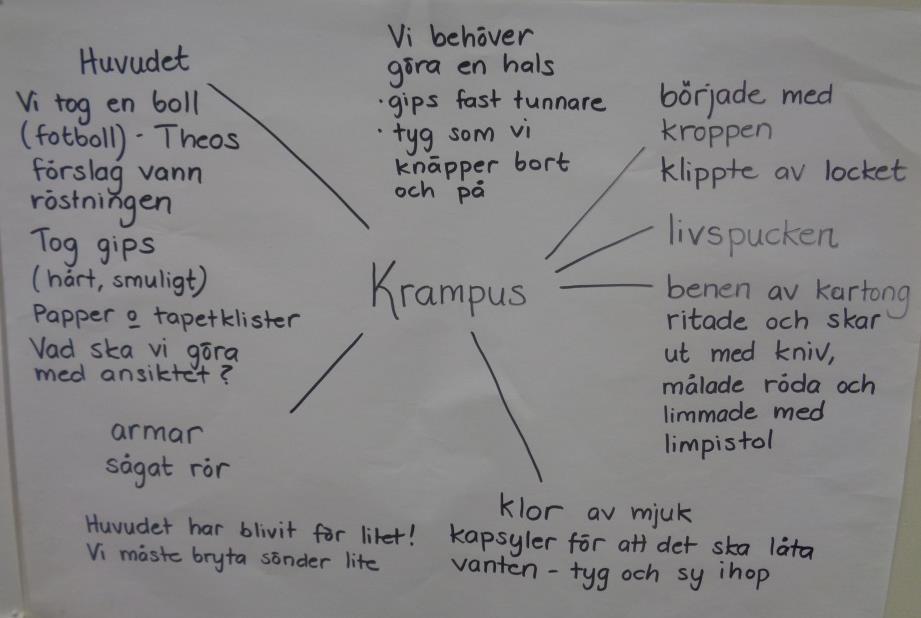 Huvudet
Vi tog en boll
(fotboll) - Theos
förslag vann
röstningen
Tog gips
(hårt, smuligt)
Papper o tapetklister
Vad ska vi göra
med ansiktet?
Vi behöver
göra en hals
· gips fast tunnare
· tyg som vi
knäpper bort
och på
började med
kroppen
klippte av locket
livspucken
Krampus
benen av kartong
ritade och skar
ut med kniv,
målade röda och
limmade med
limpistol
armar
sågat rör
Huvudet har blivit för litet!
Vi måste bryta sönder lite
klor av mjuk
kapsyler för att det ska låta
vanten - tyg och sy ihop